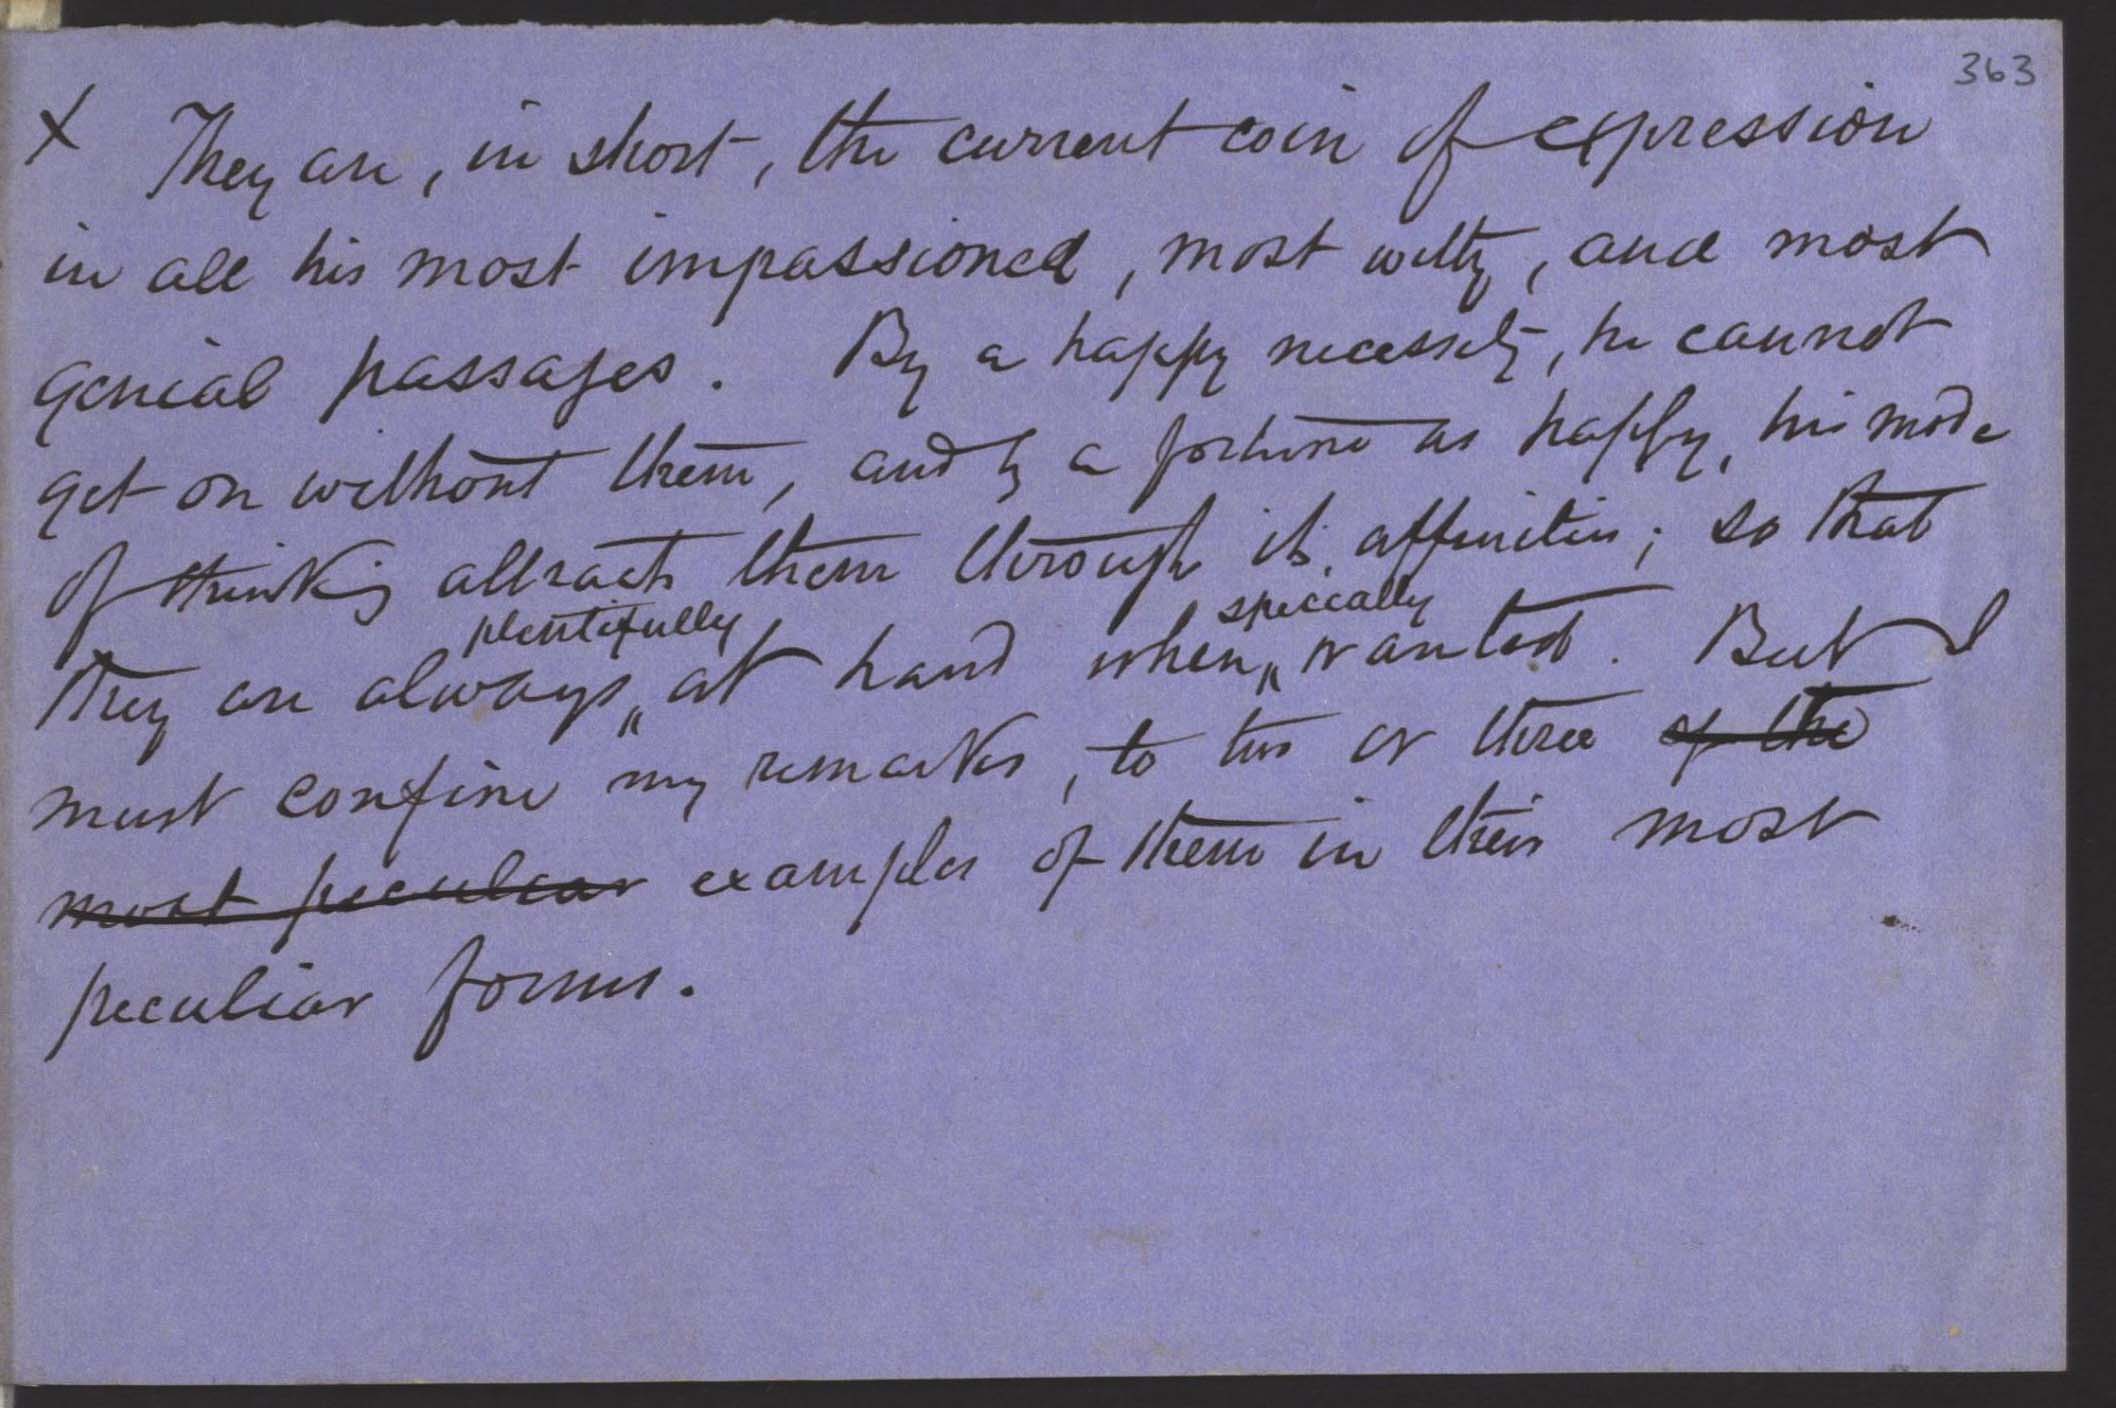 363
X They are, in short, the current coin of expression
in all his most impassioned, most witty, and most
genial passages. By a happy necessity, he cannot
get on without them, and by a fortune as happy, his mode
of thinking attracts them through its affinities; so that
plentifully specially
they are always at hand when wanted. But I
must confine my remarks, to two or three of the
most peculiar examples of them in their most
peculiar forms.